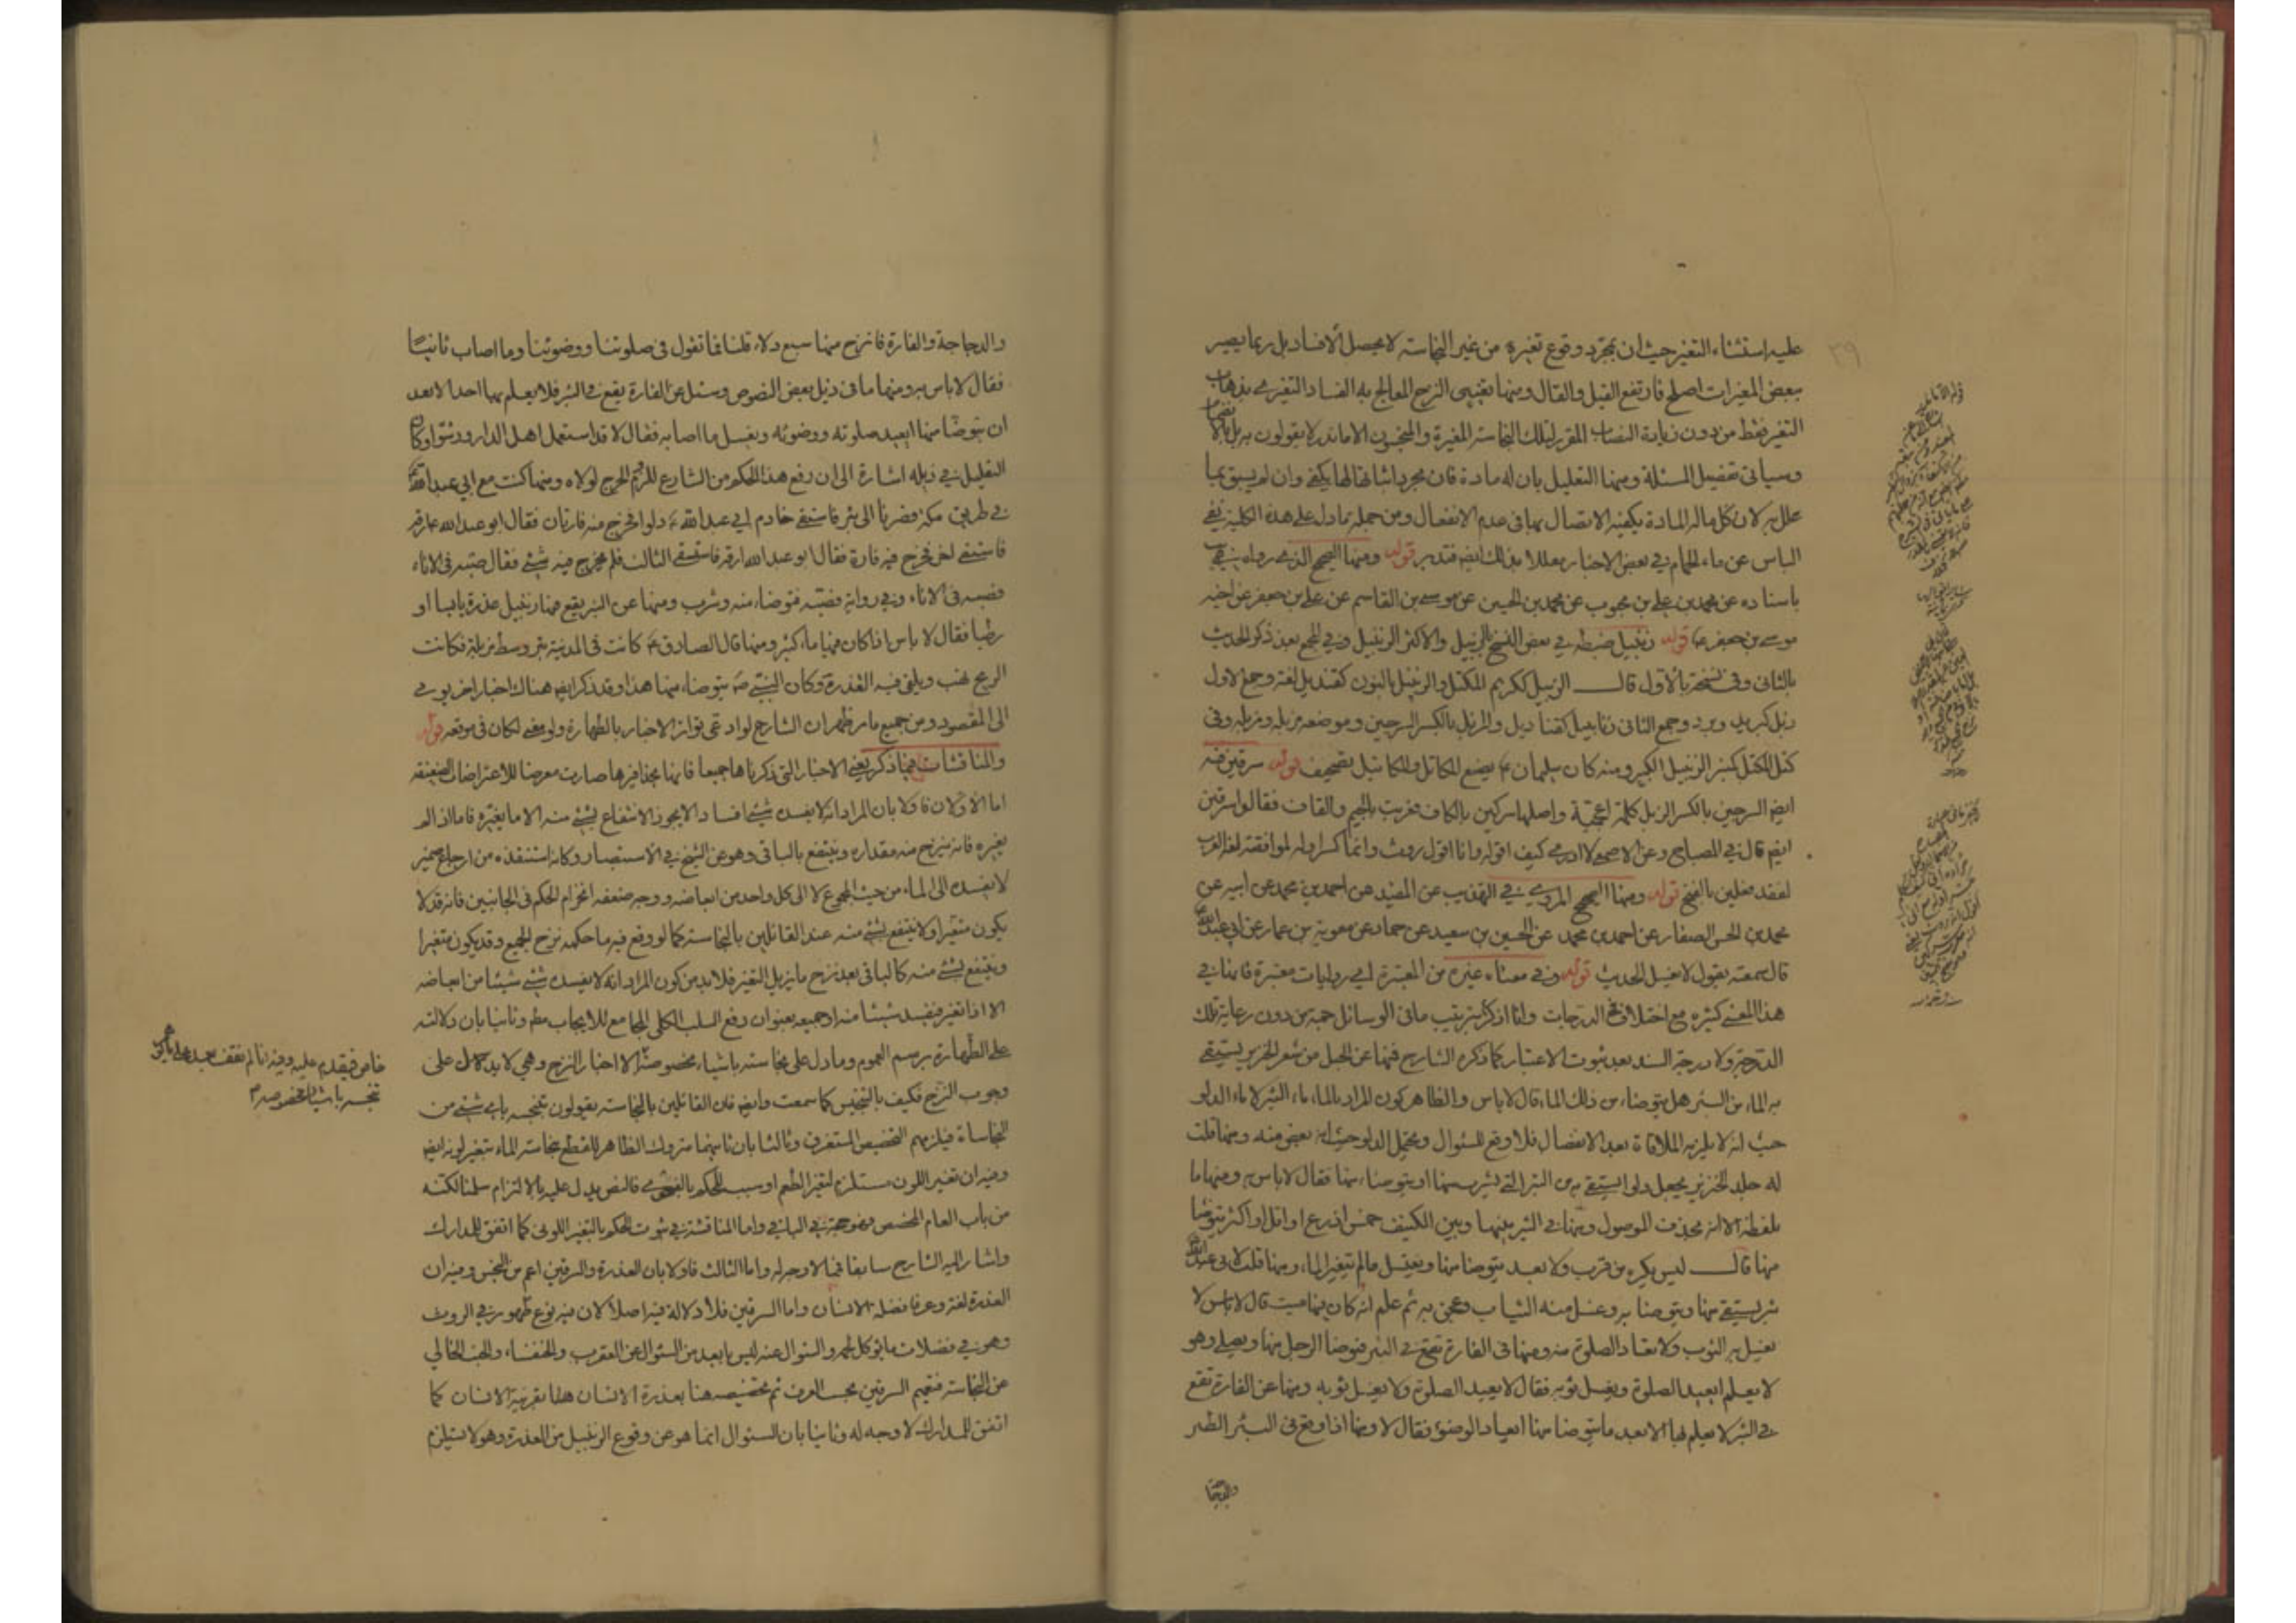 ٢٩
عليه استثناء التغير حيث ان بمجرد وقوع تغيره من غير النجاسة لا يحصل الافساد بل ربما يصير
ببعض المغيرات اصلح فارتفع القيل والقال ومنها تقييد النزح المعالج به الفساد التغيري بذهاب
التغير فقط من دون زيادة النصاب المقرر لتلك النجاسة المغيرة والمنجسون الا ما ندر لا يقولون به بل
وسياتي تفصيل المسئلة ومنها التعليل بان له مادة فان مجرد اثباتها لها يكفي وان لم يسبق بما
علل به لان كل ماله المادة يكفيه الاتصال بها في عدم الانفعال ومن جملة ما دل على هذه الكلية نفي
الباس عن ماء الحمام في بعض الاخبار معللا بذلك ايضا فتدبر قوله ومنها الصحيح الذي رواه
باسناده عن محمد بن علي بن محبوب عن محمد بن الحسين عن موسى بن القاسم عن علي بن جعفر عن اخيه
موسى بن جعفر ع قوله زنبيل ضبطه في بعض النسخ بالزبيل والاكثر الزنبيل وفي المجمع بعد ذكر الحديث
بالثاني وفي نسخة بالاول قال الزبيل ككريم المكتل والزنبيل بالنون كقنديل لغة وجمع الاول
زبل كبريد وبرد وجمع الثاني زنابيل كقناديل والزبل بالكسر السرجين وموضعه مزبلة ومزبلة وفي
كتل المكتل كمنبر الزنبيل الكبير ومنه كان سليمان ع يصنع المكاتل والمكاتيل تصحيف قوله سرقين فيه
ايضا السرجين بالكسر الزبل كلمة اعجمية واصلها سركين بالكاف فعربت بالجيم والقاف فقالوا سرقين
ايضا قال في المصباح وعن الاصمعي لا ادري كيف اقوله وانا اقول روث وانما كسر اوله لموافقته لغة العرب
لفقد فعلين بالفتح قوله ومنها الصحيح المروي في التهذيب عن المفيد عن احمد بن محمد عن ابيه عن
محمد بن الحسن الصفار عن احمد بن محمد عن الحسين بن سعيد عن حماد عن معوية بن عمار عن ابي عبد الله
قال سمعته يقول لا يغسل الحديث قوله وفي معناه غيره من المعتبرة اي روايات معتبرة فانها في
هذا المعنى كثيرة مع اختلاف في الدرجات وانا اذكر بترتيب ما في الوسائل جملة من دون رعاية تلك
الدرجة ولا درجة السند بعد ثبوت الاعتبار كما ذكره الشارح فمنها عن الحبل من شعر الخنزير يستقى
به الماء من البئر هل يتوضاء من ذلك الماء قال لا باس والظاهر كون المراد بالماء ماء البئر لا ماء الدلو
حيث انه لا يلزمه الملاقاة بعد الانفصال فلا وقع للسئوال ويحتمل الدلو حيث انه بعض منه ومنها قلت
له جلد الخنزير يجعل دلوا يستقى به من البئر التي يشرب منها او يتوضاء منها فقال لا باس به ومنها ما
بلفظه الا انه بحذف الموصول ومنها في البئر بينها وبين الكنيف خمس اذرع او اقل او اكثر يتوضا
منها قال ليس يكره من قرب ولا بعد يتوضا منها ويغتسل ما لم يتغير الماء ومنها قلت لابي عبد الله
بئر يستقى منها ويتوضا به وغسل منه الثياب وعجن به ثم علم انه كان فيها ميت قال لا باس لا
يغسل به الثوب ولا تعاد الصلوة منه ومنها في الفارة تقع في البئر فتوضا الرجل منها ويصلي وهو
لا يعلم ايعيد الصلوة ويغسل ثوبه فقال لا يعيد الصلوة ولا يغسل ثوبه ومنها عن الفارة تقع
في البئر لا يعلم بها الا بعد ما يتوضا منها ايعاد الوضوء فقال لا ومنها اذا وقع في البئر الطير
والدجاجة
والدجاجة والفارة فانزح منها سبع دلاء قلنا فما تقول في صلوتنا ووضوئنا وما اصاب ثيابنا
فقال لا باس به ومنها ما في ذيل بعض النصوص وسئل عن الفارة يقع في البئر فلا يعلم بها احد الا بعد
ان يتوضا منها ايعيد صلوته ووضوئه ويغسل ما اصابه فقال لا قد استعمل اهل الدار ورشوا وكان
التعليل في ذيله اشارة الى ان رفع هذا الحكم من الشارع للزوم الحرج لولاه ومنها كنت مع ابي عبد الله
في طريق مكة فصرنا الى بئر فاستقى خادم ابي عبد الله ع دلوا فخرج منه فارتان فقال ابو عبد الله ع ارقه
فاستقى اخر فخرج فيه فارة فقال ابو عبد الله ارقه فاستقى الثالث فلم يخرج فيه شيئ فقال صبه في الاناء
فصبه في الاناء وفي رواية فصبه فتوضاء منه وشرب ومنها عن البئر يقع فيها زنبيل عذرة يابسا او
رطبا فقال لا باس اذا كان فيها ماء كثير ومنها قال الصادق ع كانت في المدينة بئر وسط مزبلة فكانت
الريح تهب ويلقى فيه القذرة وكان النبي ص يتوضاء منها هذا وقد ذكر ايضا هناك اخبار اخر يومي
الى المقصود ومن جميع ما مر ظهر ان الشارح لو ادعى تواتر الاخبار بالطهارة ولو معنى لكان في موقعه قوله
والمناقشات فيما ذكر يعني الاخبار التي ذكرناها جميعا فانها بحذافيرها صارت معرضا للاعتراضات الضعيفة
اما الاولان فاولا بان المراد انه لا يفسده شيئ افسادا لا يجوز الانتفاع بشيئ منه الا ما يغيره فاما الذي لم
يغيره فانه ينزح منه مقداره وينتفع بالباقي وهو عن الشيخ في الاستبصار وكانه استنقذه من ارجاع ضمير
لا يفسده الى الماء من حيث المجموع لا الى كل واحد من ابعاضه ووجه ضعفه انخرام الحكم في الجانبين فانه قد لا
يكون متغيرا ولا ينتفع بشيئ منه عند القائلين بالنجاسة كما لو وقع فيه ما حكمه نزح الجميع وقد يكون متغيرا
وينتفع بشيئ منه كالباقي بعد نزح ما يزيل التغير فلابد من كون المراد انه لا يفسده شيئ شيئا من ابعاضه
الا اذا تغير فيفسد شيئا منه او جميعه بعنوان رفع السلب الكلي الجامع للايجاب مطلقا وثانيا بان دلالته
على الطهارة برسم العموم وما دل على نجاسته باشياء مخصوصة الا اخبار النزح وهي لا يدل على
وجوب النزح فكيف بالتنجيس كما سمعت وايضا فان القائلين بالنجاسة يقولون بتنجسه باي شيئ من
النجاسات فيلزمهم التخصيص المستغرق وثالثا بان ثانيهما متروك الظاهر للقطع بنجاسة الماء بتغير لونه ايضا
وفيه ان تغير اللون مستلزم لتغير الطعم او سبب للحكم بالفحوى فالنص يدل عليه بالالتزام سلمنا لكنه
من باب العام المخصص وهو حجة في الباقي واما المناقشة في ثبوت الحكم بالتغير اللوني كما اتفق للمدارك
واشار اليه الشارح سابقا فمما لا وجه له واما الثالث فاولا بان العذرة والسرقين اعم من النجس وفيه ان
العذرة لغة وعرفا فضلة الانسان واما السرقين فلا دلالة فيه اصلا لان فيه نوع ظهور في الروث
وهو في فضلات ما يؤكل لحمه والسئوال عنه ليس بابعد من السئوال عن العقرب والخنفساء والجنب الخالي
عن النجاسة فتعميم السرقين بحسب العرف ثم تخصيصه هنا بعذرة الانسان هنا بقرينة الانسان كما
اتفق للمدارك لا وجه له وثانيا بان السئوال انما هو عن وقوع الزنبيل من العذرة وهو لا يستلزم
خاص فيقدم عليه وفيه انا لم نقف بعد على ما يدل
تنجسه باشياء مخصوصة